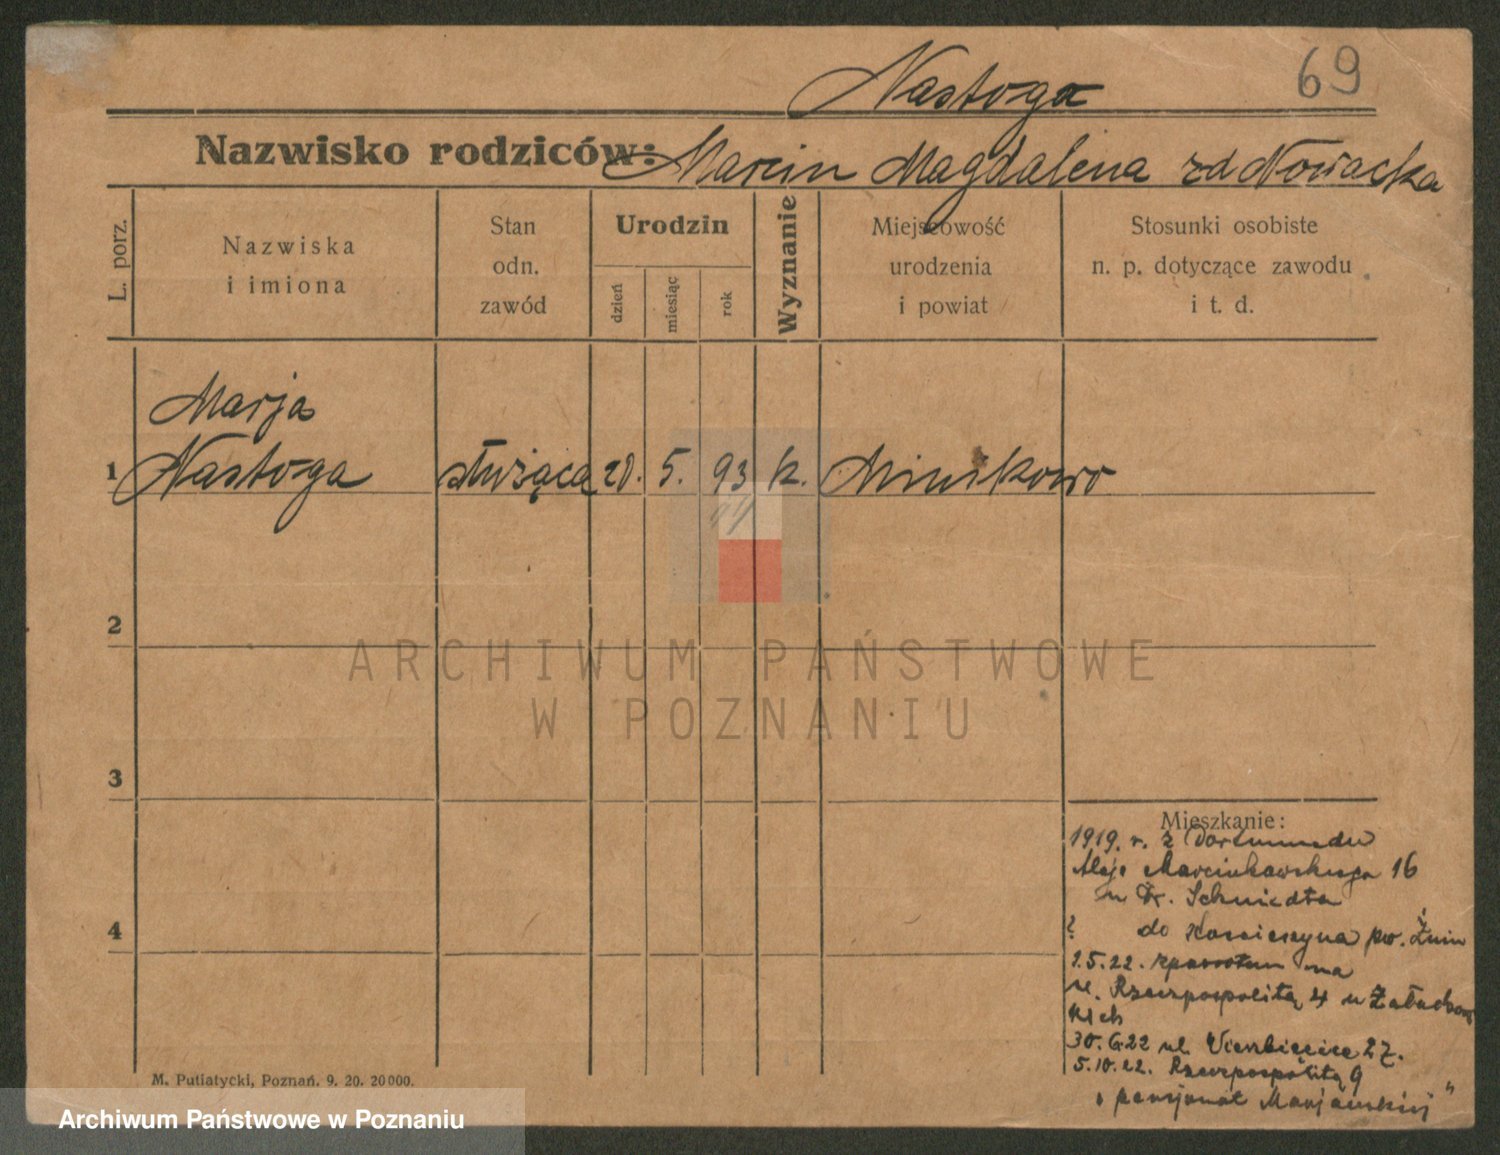 69
Nastoga
Nazwisko rodziców: Marcin Magdalena zd Nowacka
L. porz.
Nazwiska
i imiona
Stan
odn.
zawód
Urodzin
dzień
miesiąc
rok
Wyznanie
Miejscowość
urodzenia
i powiat
Stosunki osobiste
n. p. dotyczące zawodu
i t. d.
Marja
1 Nastoga służąca 20. 5. 93 k. Minikowo
94
2
ARCHIWUM PAŃSTWOWE
W POZNANIU
3
Mieszkanie:
1919. r. z Dortmundu
Aleje Marcinkowskiego 16
u Dr. Schmiedta
?
do pw. Żnin
1.5.22. na
ul. Rzeczpospolitą 4 u
kich
30.6.22 ul. Wierzbięcice 27.
5.10.22. Rzeczpospolitą 9
pensjonat Marjańskiej"
4
M. Putiatycki, Poznań. 9. 20. 20000.
Archiwum Państwowe w Poznaniu